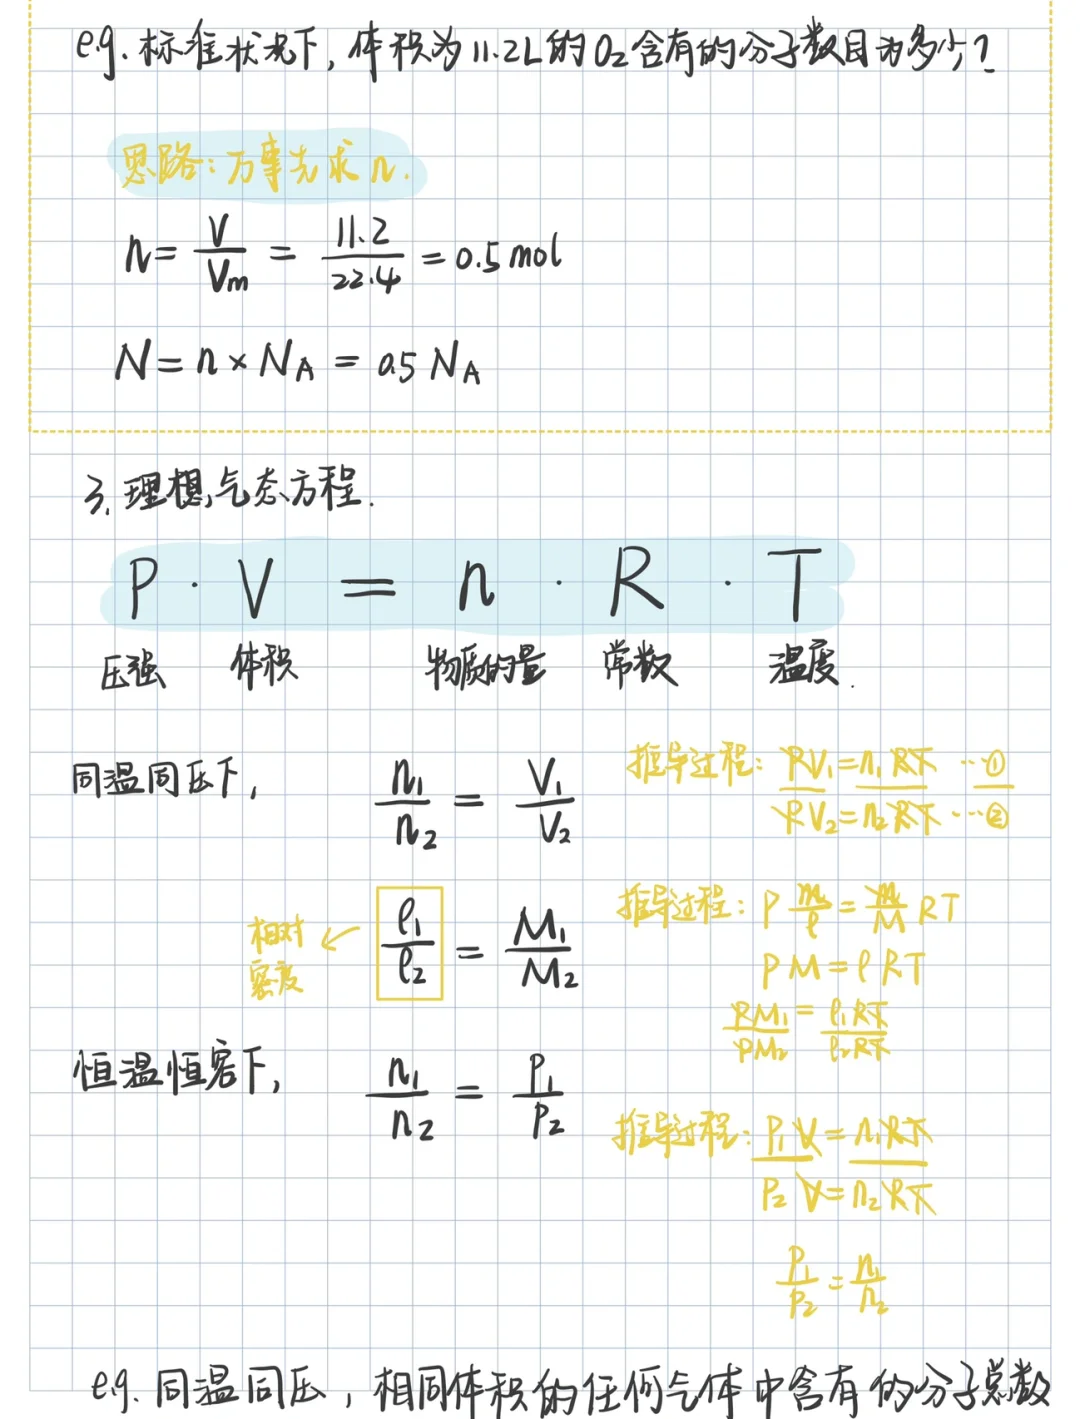 e.g. 标准状况下，体积为11.2L的O₂含有的分子数目为多少？
思路：万事先求n.
n = V/Vm = 11.2/22.4 = 0.5 mol
N = n × N_A = 0.5 N_A
3. 理想气态方程.
P · V = n · R · T
压强 体积 物质的量 常数 温度.
同温同压下, n₁/n₂ = V₁/V₂
推导过程: PV₁ = n₁RT …①
PV₂ = n₂RT …②
相对密度 ← ρ₁/ρ₂ = M₁/M₂
推导过程: P m/ρ = m/M RT
PM = ρRT
PM₁/PM₂ = ρ₁RT/ρ₂RT
恒温恒容下, n₁/n₂ = P₁/P₂
推导过程: P₁V = n₁RT
P₂V = n₂RT
P₁/P₂ = n₁/n₂
e.g. 同温同压，相同体积的任何气体中含有的分子总数